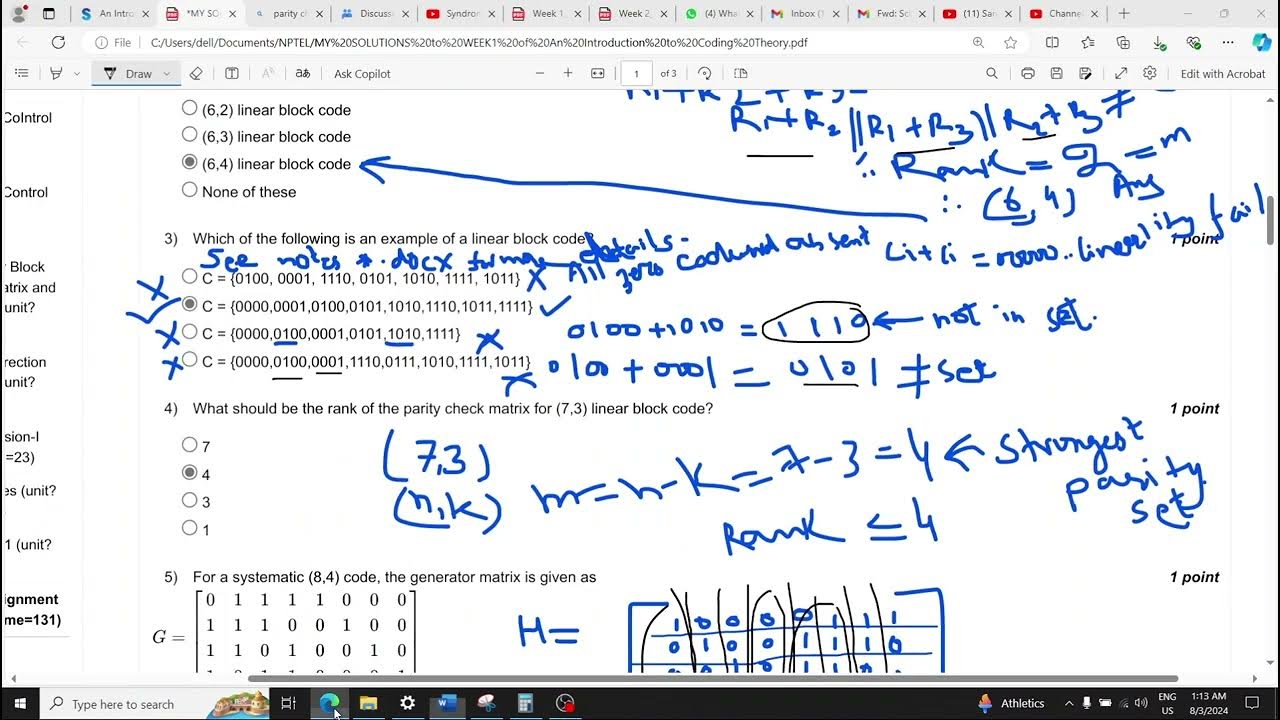 An Introc
*MY SO
parity ch
Discuss
Syndron
Week 1_
Week 2_
(4) What
Inbox (1
Fwd: Sc
(11) San
Channe
File C:/Users/dell/Documents/NPTEL/MY%20SOLUTIONS%20to%20WEEK1%20of%20An%20Introduction%20to%20Coding%20Theory.pdf
Draw Ask Copilot 1 of 3 Edit with Acrobat
(6,2) linear block code
CoIntrol
R1+R2 || R1+R3 || R2+R3 ≠
(6,3) linear block code
(6,4) linear block code
∴ Rank = 2 = m
Ans
Control
None of these
∴ (6,4)
3) Which of the following is an example of a linear block code?
1 point
See notes *.docx for more details.
All zero codeword absent
Ci+Ci = 0000. linearity fail
Block
atrix and
unit?
C = {0100, 0001, 1110, 0101, 1010, 1111, 1011} X
C = {0000,0001,0100,0101,1010,1110,1011,1111} ✓
C = {0000,0100,0001,0101,1010,1111} X
0100+1010 = 1110 ← not in set.
rection
unit?
C = {0000,0100,0001,1110,0111,1010,1111,1011} X
0100 + 0001 = 0101 ≠ set
4) What should be the rank of the parity check matrix for (7,3) linear block code?
1 point
sion-I
=23)
7
4
3
1
(7,3)
(n,k)
m=n-k=7-3=4 ← strongest
parity
set
Rank ≤ 4
es (unit?
1 (unit?
5) For a systematic (8,4) code, the generator matrix is given as
1 point
ignment
me=131)
G =
0 1 1 1 1 0 0 0
1 1 1 0 0 1 0 0
1 1 0 1 0 0 1 0
H =
1 0 0 0 0 1 1 1
0 1 0 0 1 1 1 0
Type here to search
Athletics
ENG
US
1:13 AM
8/3/2024